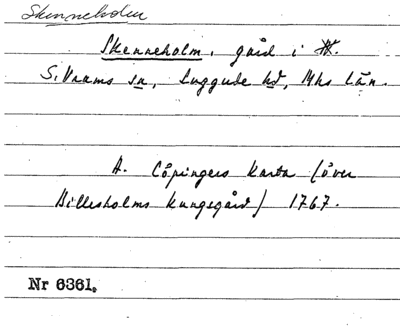 Skenneholm
Skenneholm, gård i
S. Vrams sn, Luggude hd, Mhs län.
A. Cöpingers karta (över
Billesholms kungsgård) 1767.
Nr 6361.